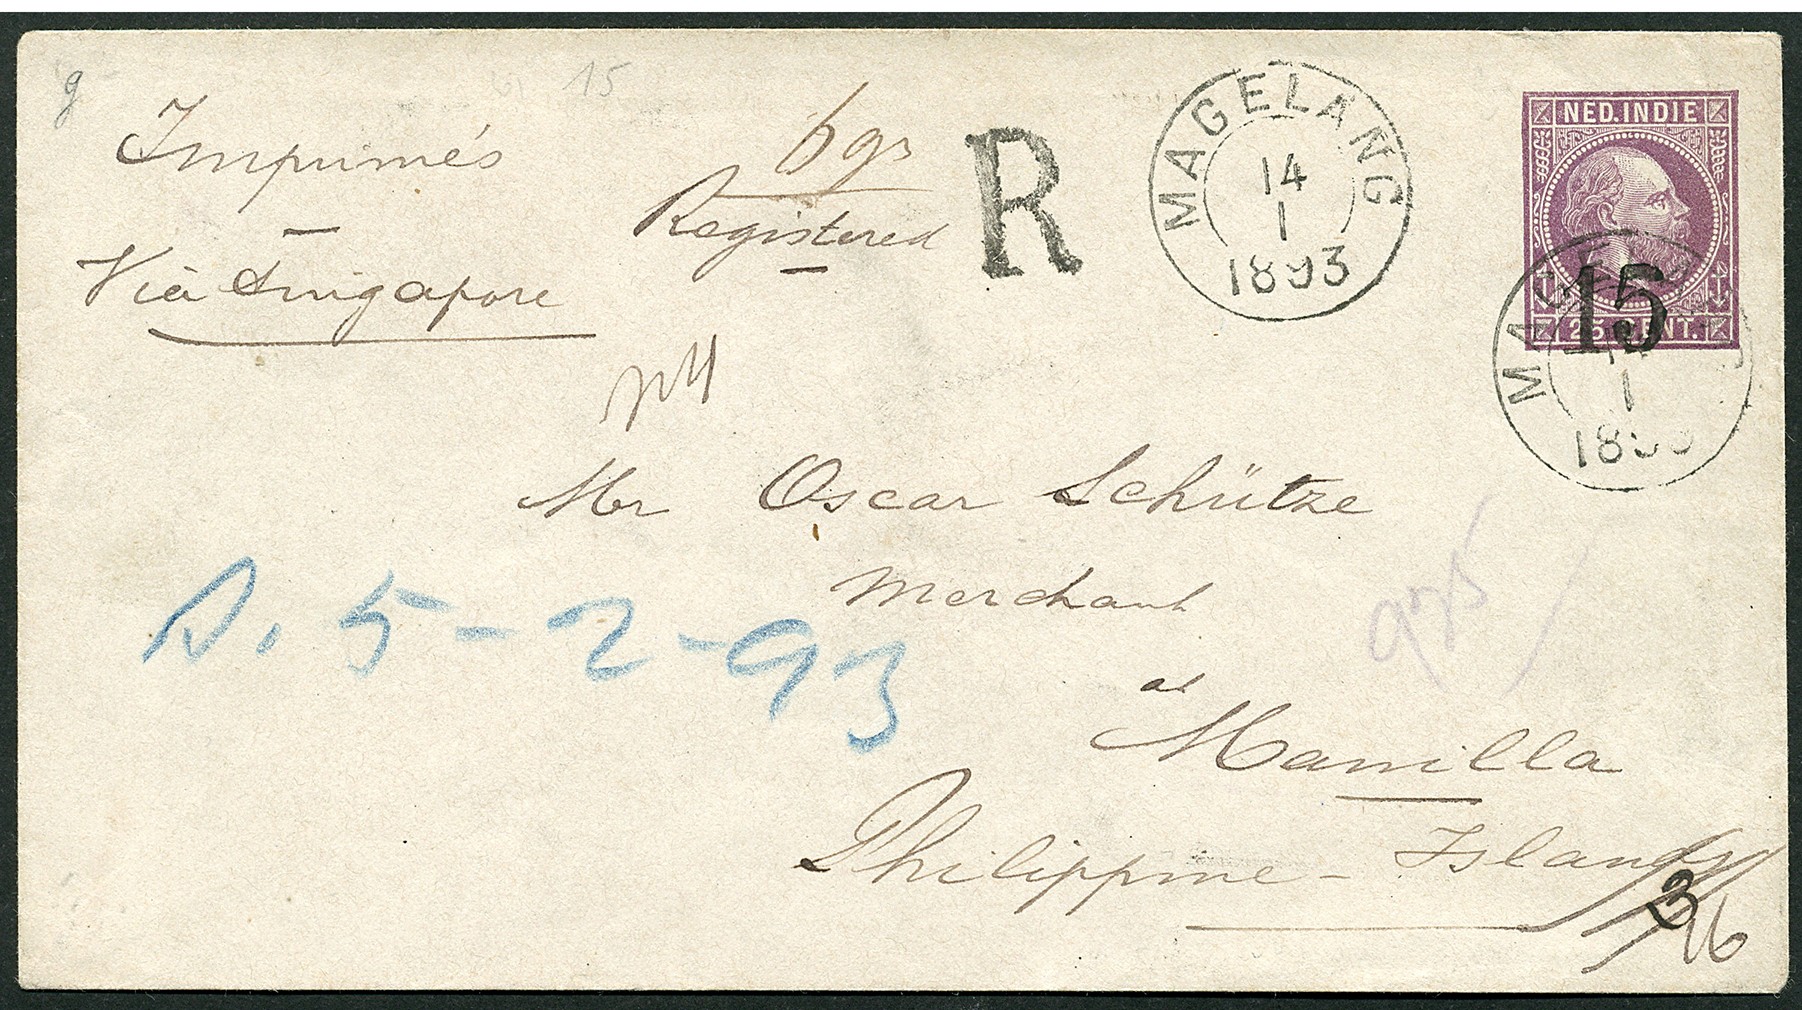 15
Imprimés
Via Singapore
6 gr
Registered
R
MAGELANG
14
1
1893
NED. INDIE
25 CENT.
15
MAGE
1
1893
Mr Oscar Schütze
Merchant
at
Manilla
Philippine - Islands
5-2-93
3